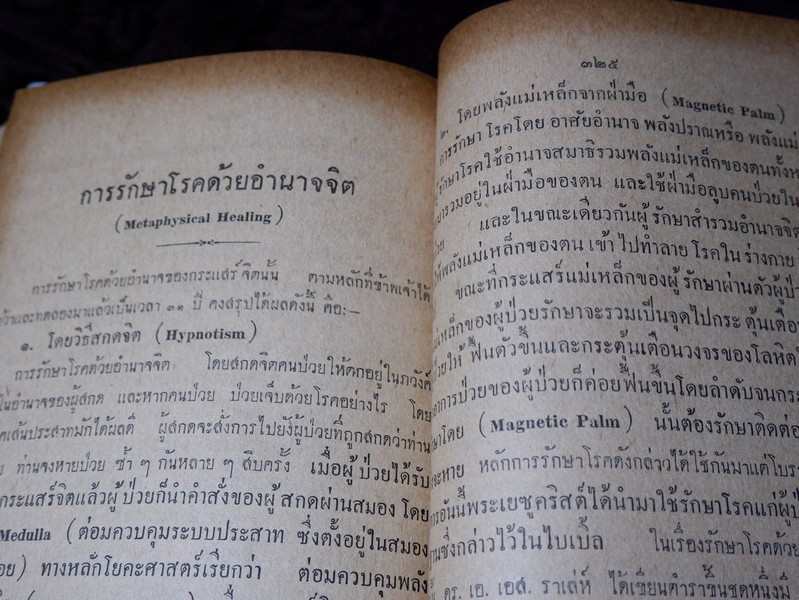 การรักษาโรคด้วยอำนาจจิต
(Metaphysical Healing)
การรักษาโรคด้วยอำนาจของกระแสร์จิตนั้น ตามหลักที่ข้าพเจ้าได้
คว้าและทดลองมาแล้วเป็นเวลา ๓๑ ปี คงสรุปได้ผลดังนี้ คือ:—
๑. โดยวิธีสกดจิต (Hypnotism)
การรักษาโรคด้วยอำนาจจิต โดยสกดจิตคนป่วยให้ตกอยู่ในภวังค์
ในอำนาจของผู้สกด และหากคนป่วย ป่วยเจ็บด้วยโรคอย่างไร โดย
เส้นประสาทมักได้ผลดี ผู้สกดจะสั่งการไปยังผู้ป่วยที่ถูกสกดว่าท่าน
ย ท่านจงหายป่วย ซ้ำ ๆ กันหลาย ๆ สิบครั้ง เมื่อผู้ป่วยได้รับ
กระแสร์จิตแล้วผู้ป่วยก็นำคำสั่งของผู้สกดผ่านสมอง โดย
Medulla (ต่อมควบคุมระบบประสาท ซึ่งตั้งอยู่ในสมอง
อย) ทางหลักโยคะศาสตร์เรียกว่า ต่อมควบคุมพลัง
๓๒๕
๒. โดยพลังแม่เหล็กจากฝ่ามือ (Magnetic Palm)
การรักษาโรคโดย อาศัยอำนาจ พลังปราณหรือ พลังแม่
รักษาโรคใช้อำนาจสมาธิรวมพลังแม่เหล็กของตนทั้งห
มารวมอยู่ในฝ่ามือของตน และใช้ฝ่ามือลูบคนป่วยใน
ย และในขณะเดียวกันผู้รักษาสำรวมอำนาจจิต
ให้พลังแม่เหล็กของตน เข้าไปทำลาย โรคใน ร่างกาย
ขณะที่กระแสร์แม่เหล็กของผู้รักษาผ่านตัวผู้ป่ว
เหล็กของผู้ป่วยรักษาจะรวมเป็นจุดไปกระตุ้นเตือ
วยให้ ฟื้นตัวขึ้นและกระตุ้นเตือนวงจรของโลหิต
อาการป่วยของผู้ป่วยก็ค่อยฟื้นขึ้นโดยลำดับจนกระ
ษาโดย (Magnetic Palm) นั้นต้องรักษาติดต่อ
จะหาย หลักการรักษาโรคดังกล่าวได้ใช้กันมาแต่โบรา
การอันนี้พระเยซูคริสต์ได้นำมาใช้รักษาโรคแก่ผู้ป
านซึ่งกล่าวไว้ในไบเบิ้ล ในเรื่องรักษาโรคด้วย
ดร. เอ. เอส. ราเล่ห์ ได้เขียนตำราขึ้นชุดหนึ่งมี